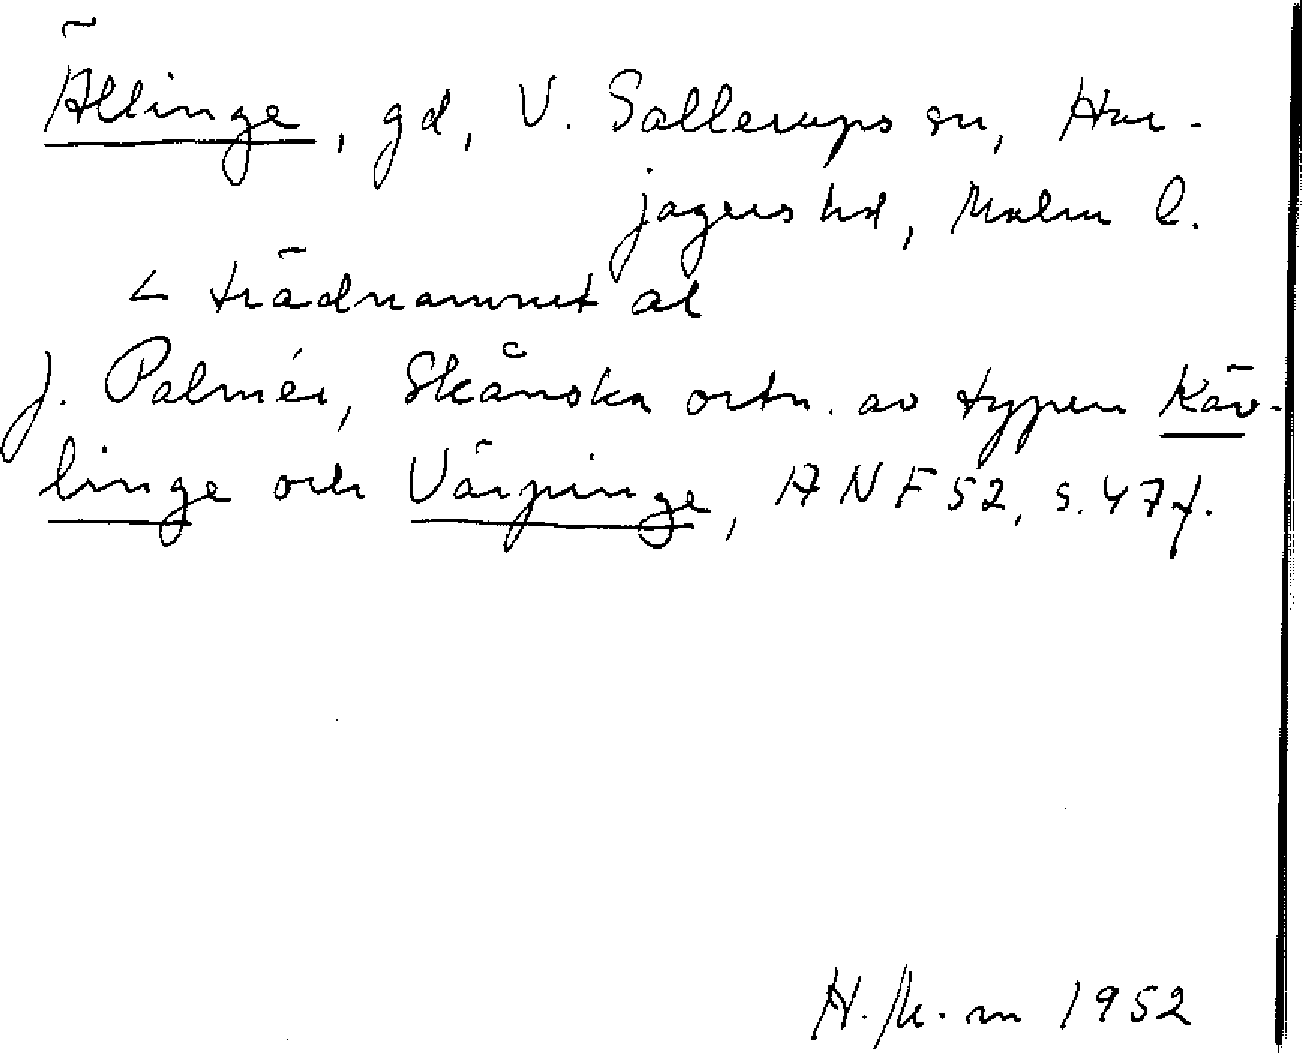 Ällinge, gd, V. Sallerups sn, Har-
jagers hd, Malm l.
< trädnamnet al
J. Palmér, Skånska ortn. av typen Käv-
linge och Värpinge, ANF 52, s. 47 f.
1952